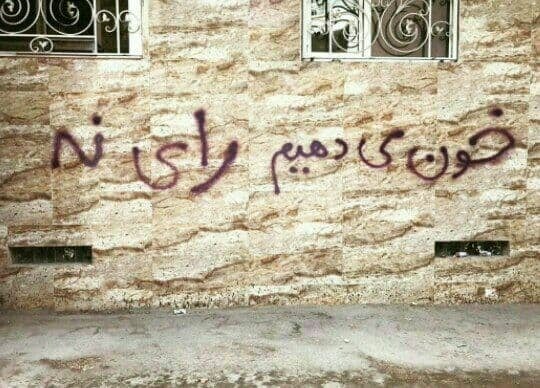 خون می دهیم رای نه